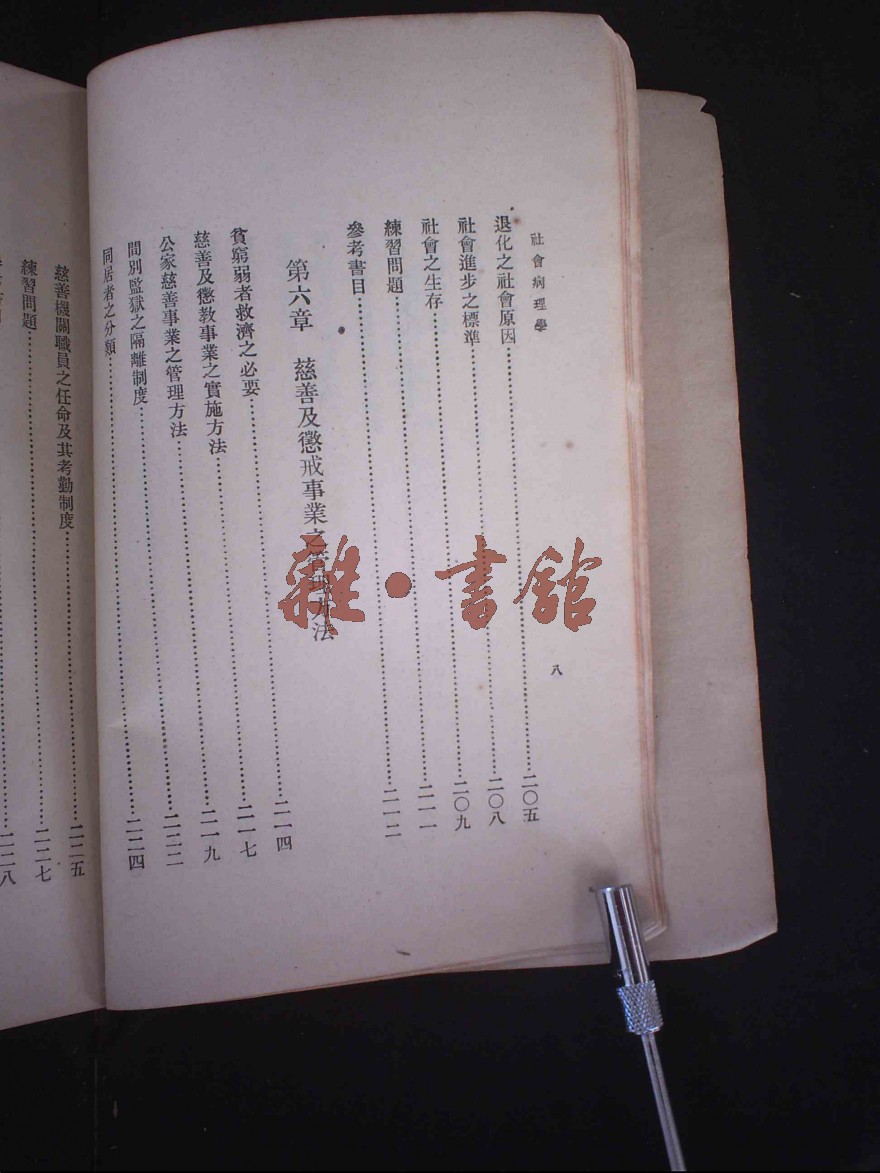 社會病理學
八
退化之社會原因……二〇五
社會進步之標準……二〇八
社會之生存……二〇九
練習問題……二一一
參考書目……二一二
第六章　慈善及懲戒事業之管理方法
貧窮弱者救濟之必要……二一四
慈善及懲教事業之實施方法……二一七
公家慈善事業之管理方法……二一九
間別監獄之隔離制度……二二二
同居者之分類……二二四
慈善機關職員之任命及其考勤制度……二二五
練習問題……二二七
二二八
雜·書館